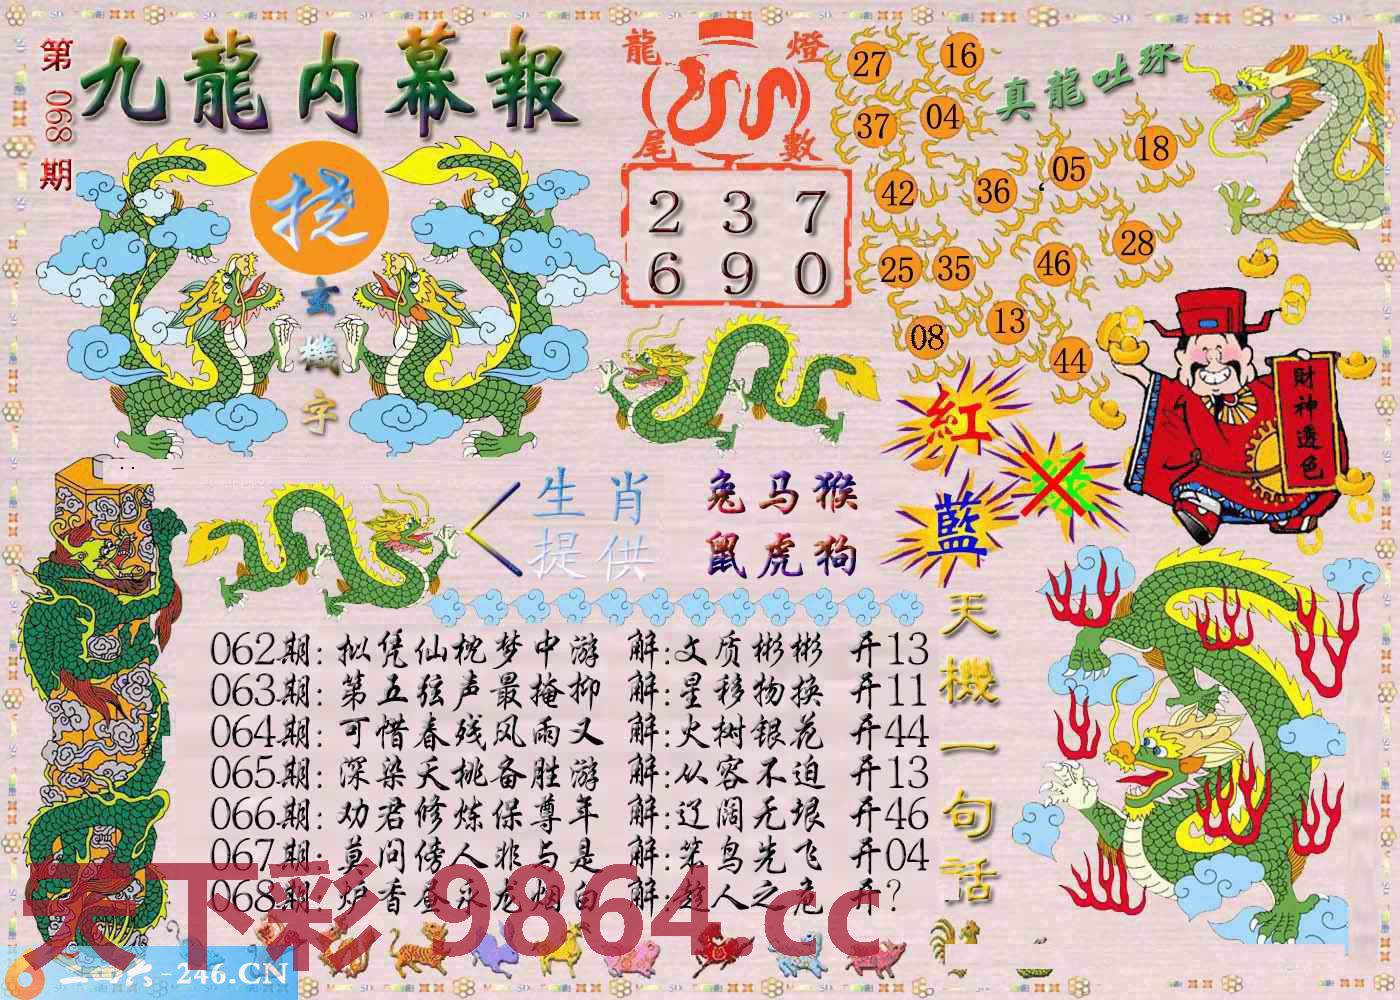 第068期
九龍内幕報
龍燈
尾數
2 3 7
6 9 0
真龍吐珠
27
16
37
04
42
36
05
18
25
35
46
28
08
13
44
玄機字
財神透色
紅
藍
生肖
提供
兔马猴
鼠虎狗
天機一句話
062期: 拟凭仙枕梦中游 解:文质彬彬 开13
063期: 第五弦声最掩抑 解:星移物换 开11
064期: 可惜春残风雨又 解:火树银花 开44
065期: 深染夭桃备胜游 解:从容不迫 开13
066期: 劝君修炼保尊年 解:辽阔无垠 开46
067期: 莫问傍人非与是 解:笨鸟先飞 开04
068期: 炉香昼永龙烟白 解:趁人之危 开?
天下彩 9864.cc
二四六-246.CN